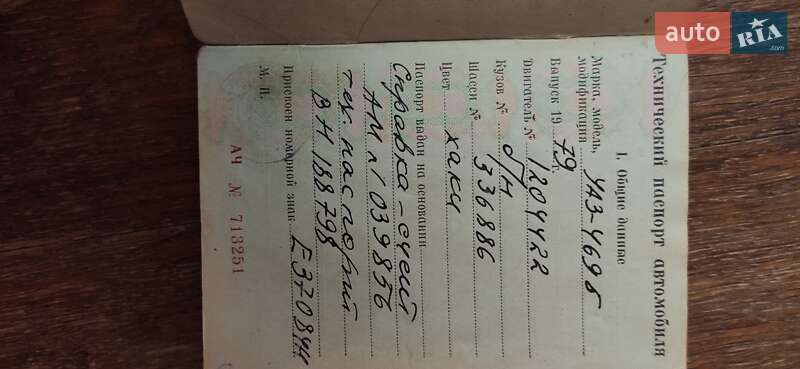 auto RIA
Технический паспорт автомобиля
I. Общие данные
Марка, модель,
модификация УАЗ-469б
Выпуск 19 79 г.
Двигатель № 1204422
Кузов № б/н
Шасси № 336886
Цвет хаки
Паспорт выдан на основании
Справка-счет
АМ № 1039856
тех. паспорт
ВН 188798
Присвоен номерной знак Е3708ЧН
М. П.
АЧ № 713251